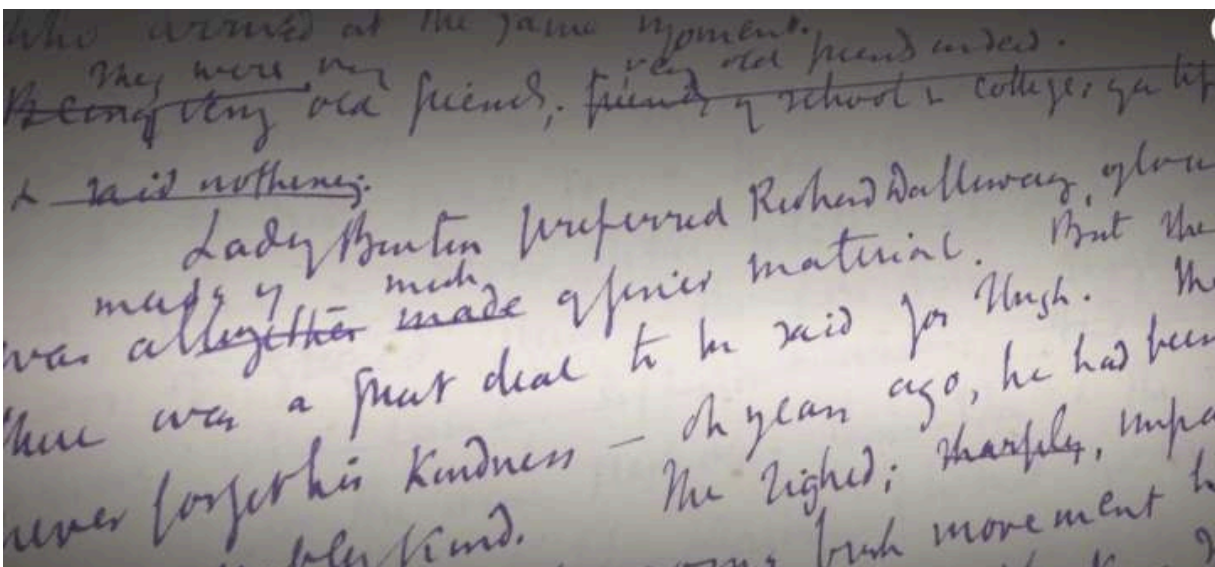 who arrived at the same moment.
They were very very old friends indeed.
Being very old friends, friends of school & college,
& said nothing.
Lady Bruton preferred Richard Dalloway, of
made of much
was altogether made of finer material. But she
there was a great deal to be said for Hugh. She
never forget his kindness – oh years ago, he had been
kind. She sighed; sharply,
movement